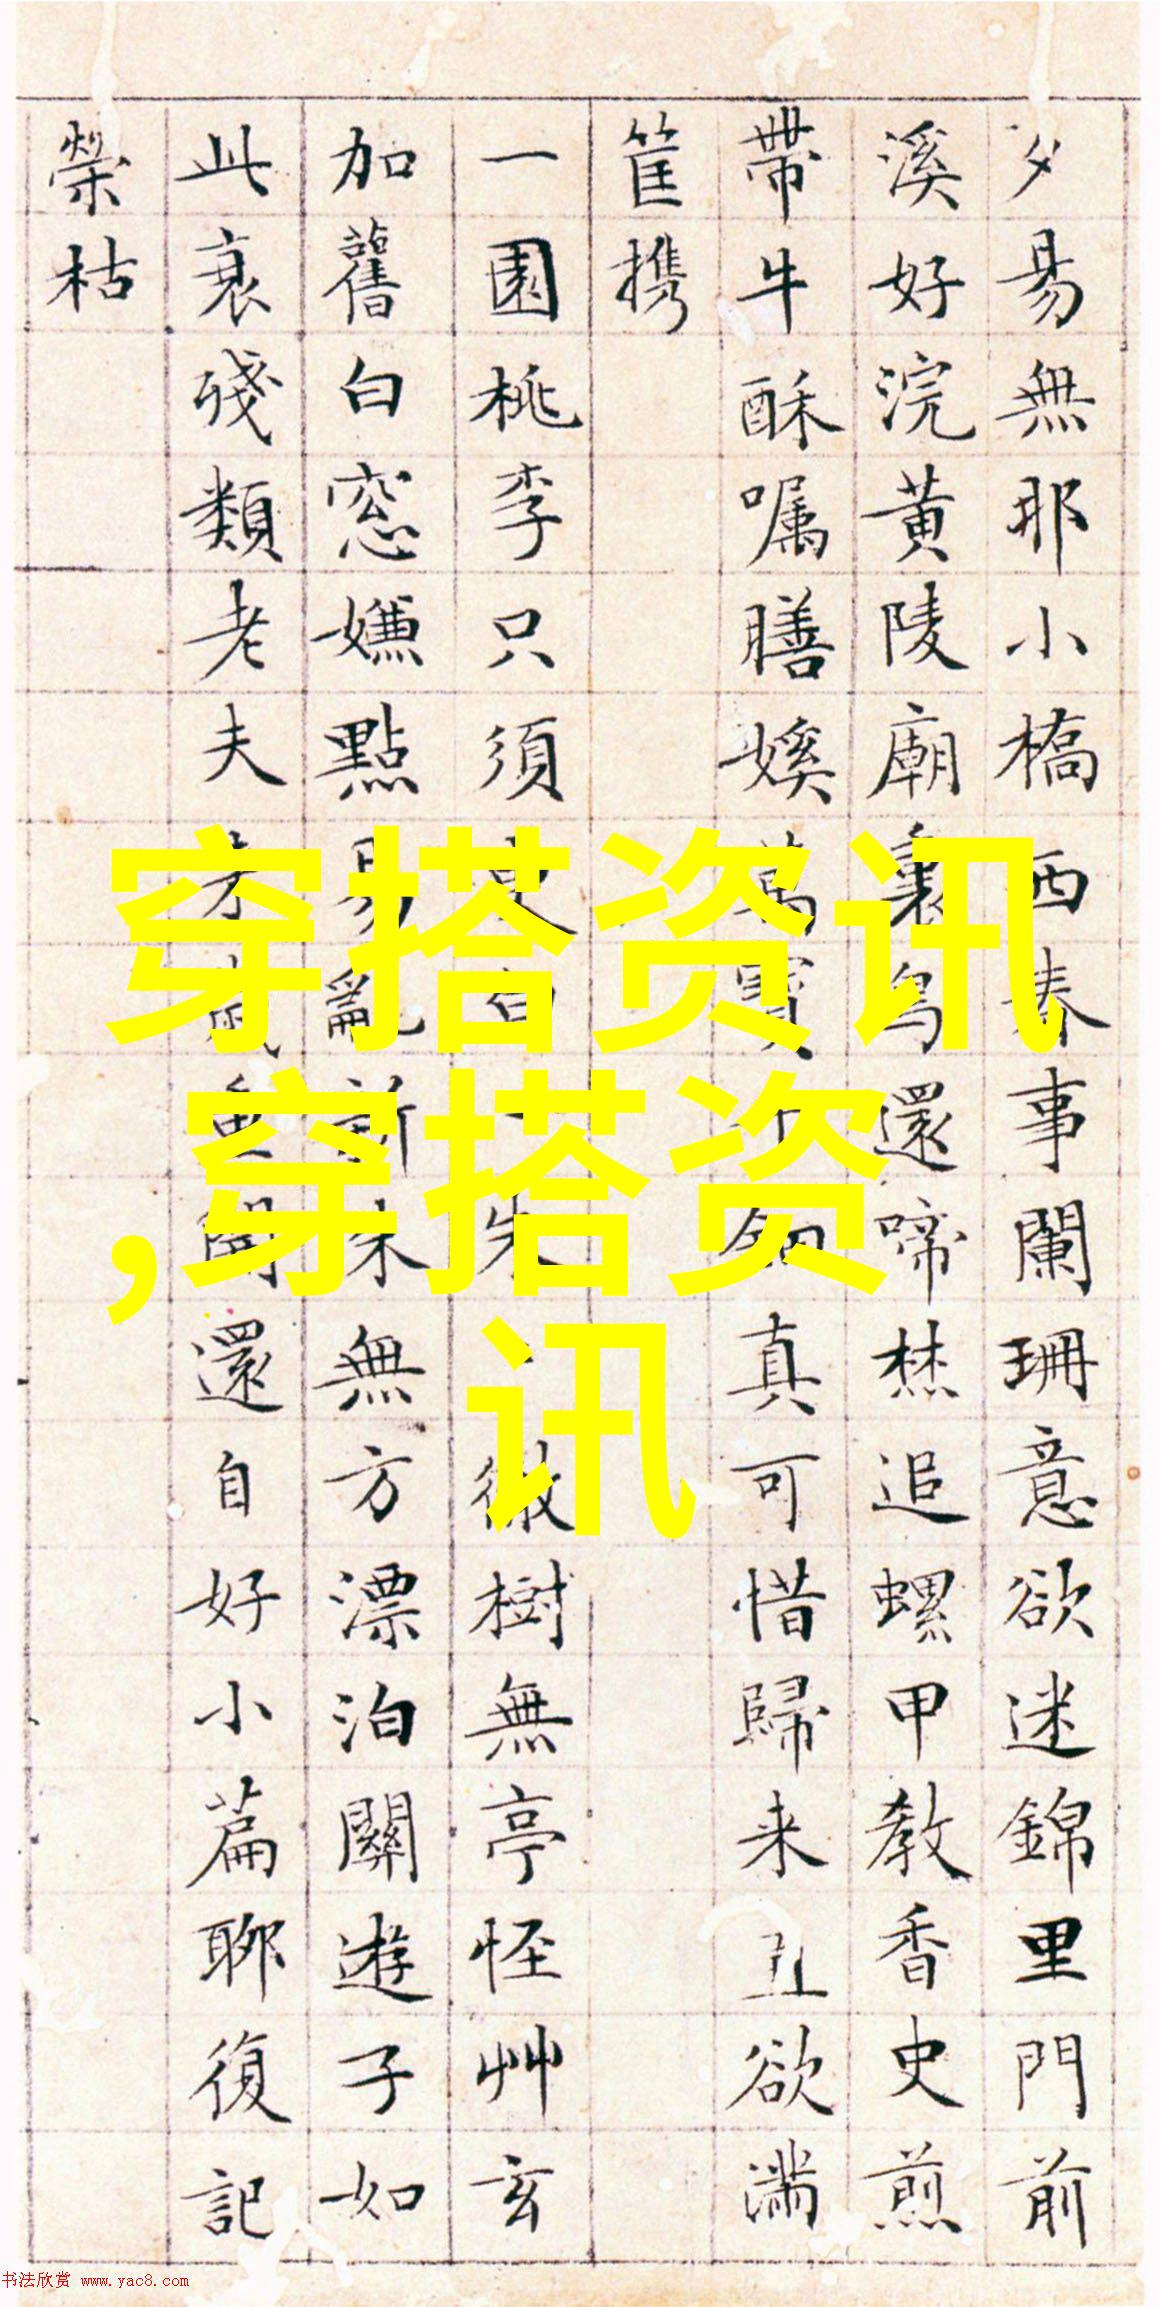 夕易無耶小橋西春事闌珊意欲迷錦里門前
溪好浣黃陵廟裏鳥還啼焚追螺甲教香史煎
帶牛酥嘱膳萬寶千鈿真可惜歸来欲滿
筐携
一園桃李只須臾白朱徹樹無亭怪艸玄
加舊白窓嫌點易亂新朱無方漂泊關遊子如
此衰殘類老夫歲重開還自好小篇聊復記
榮枯
穿搭资讯
,穿搭资
讯
书法欣赏 www.yac8.com